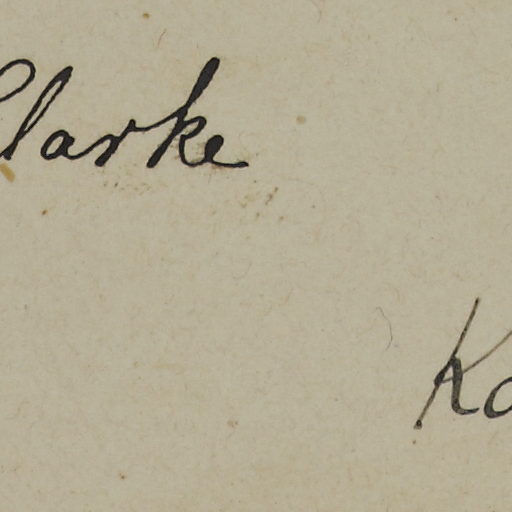 Clarke
Ka